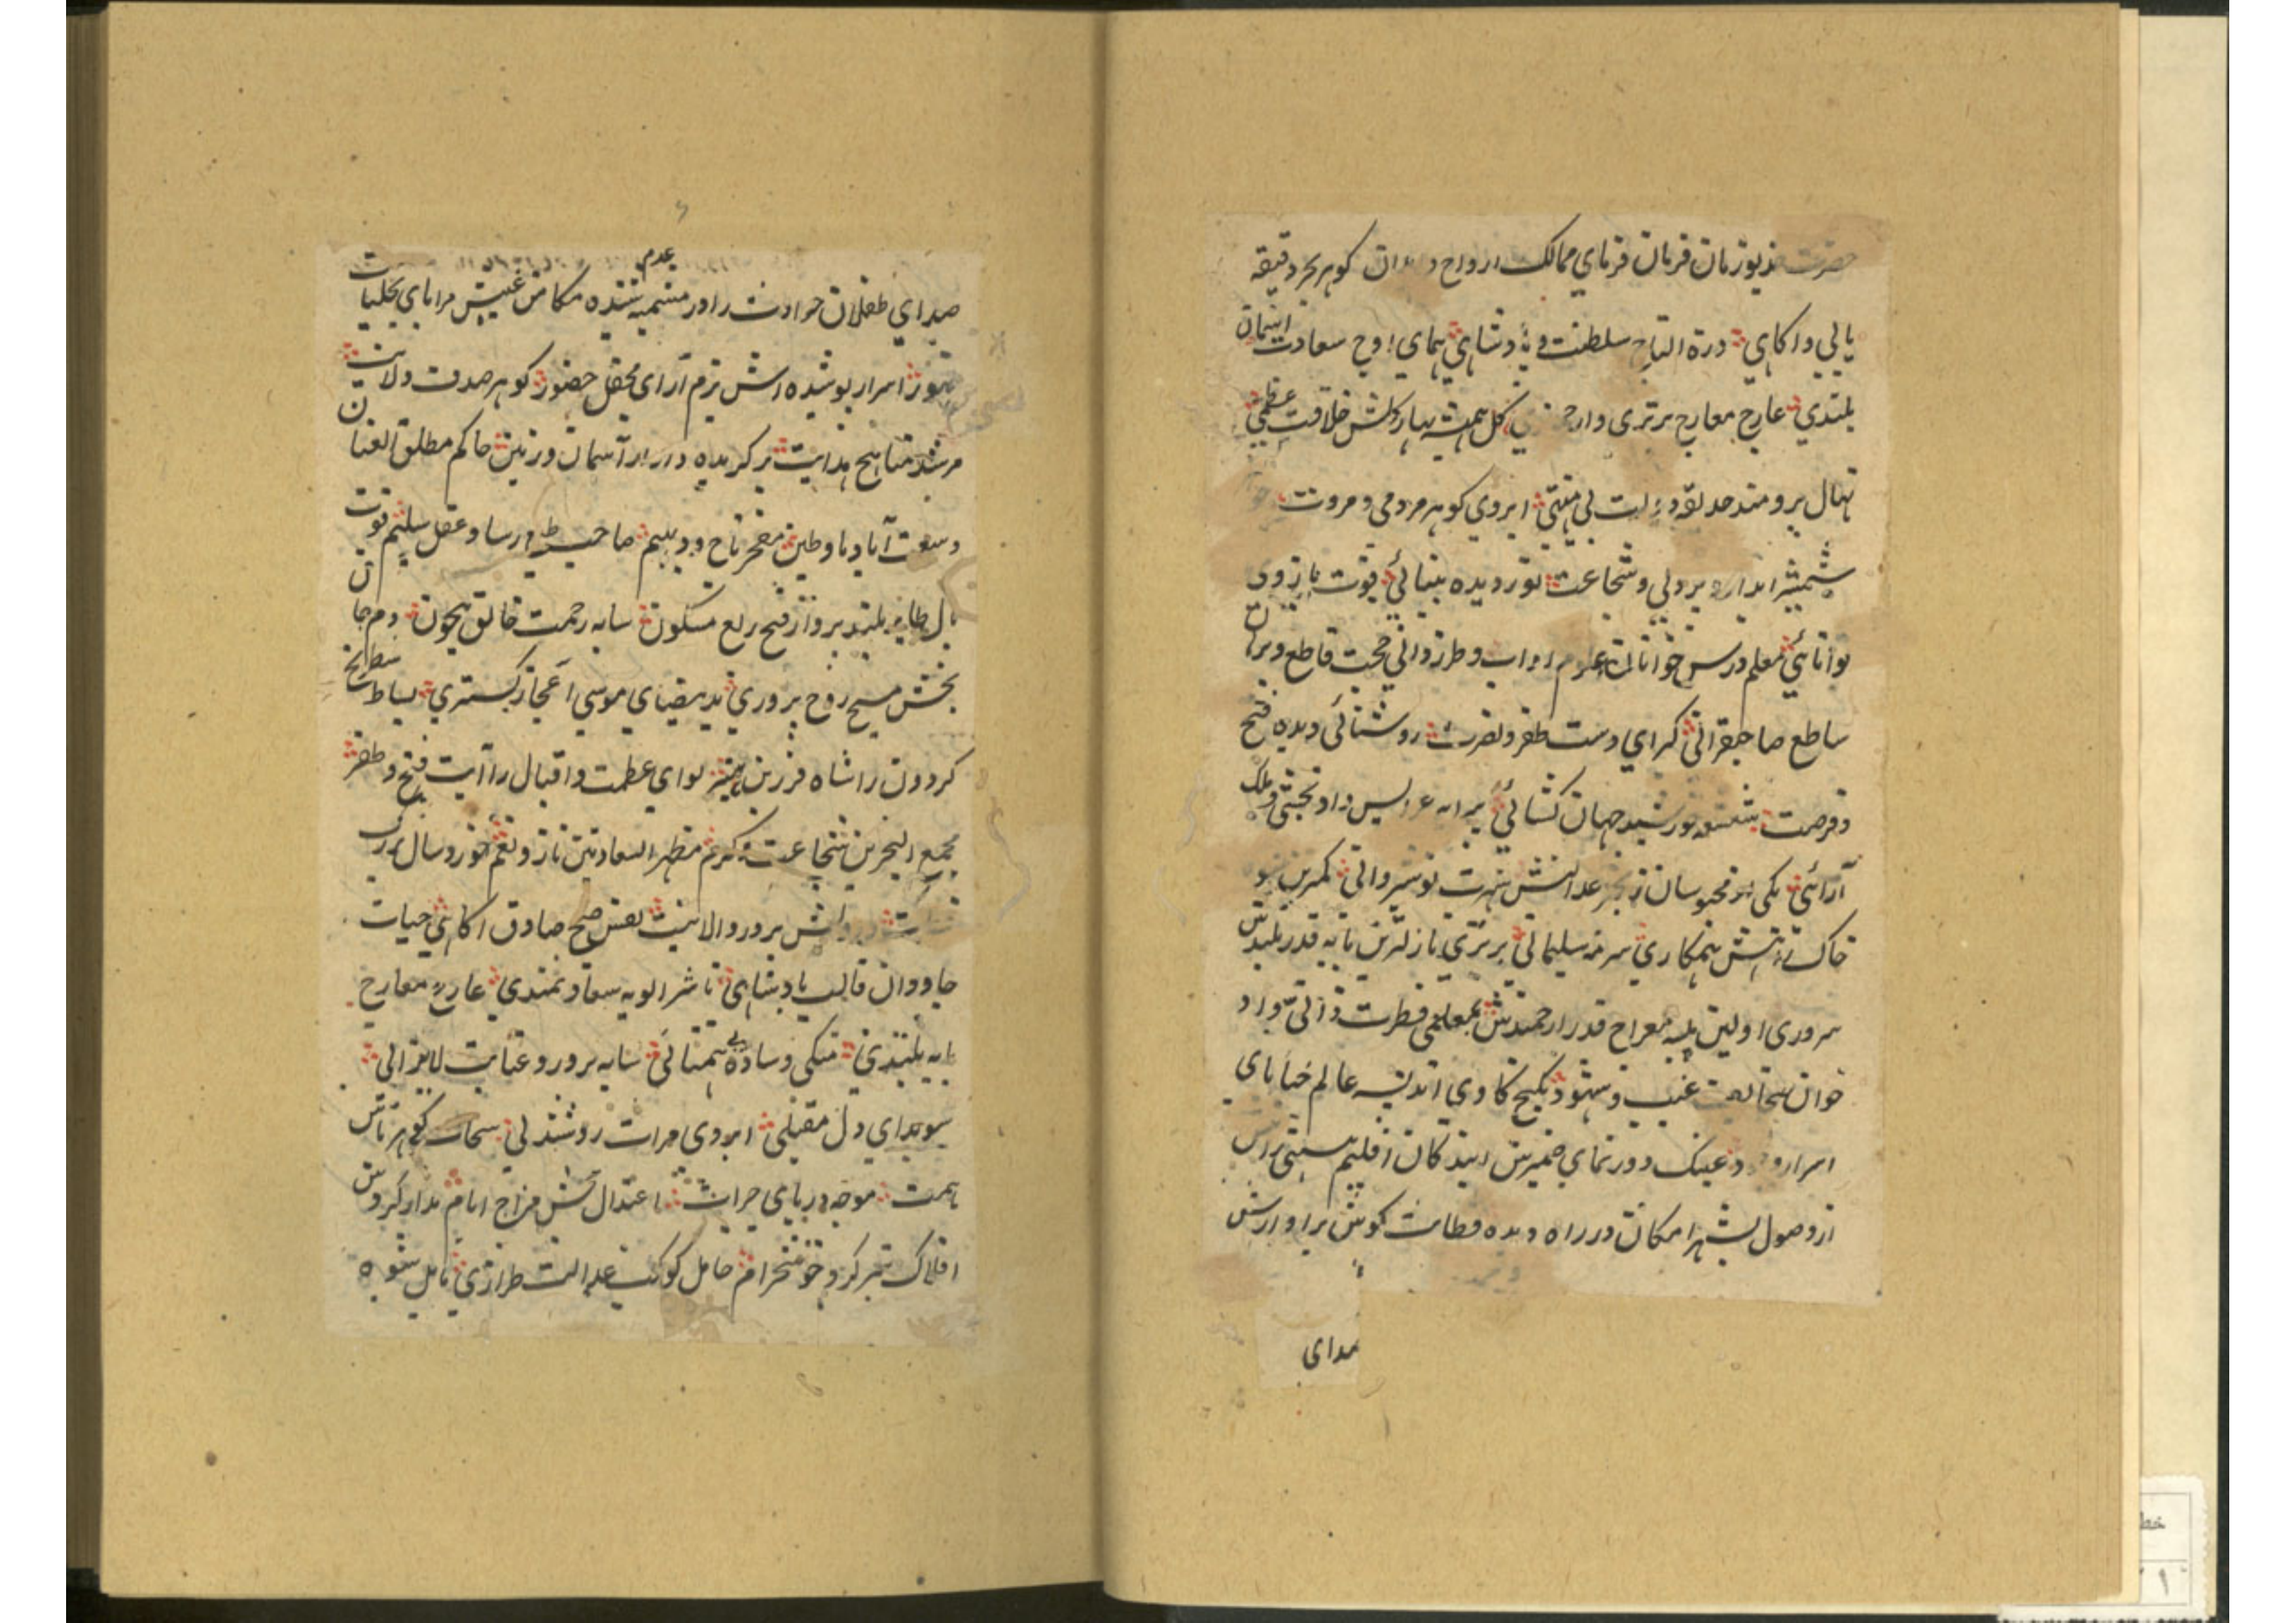 حضرت خدیو زمان فرمان فرمای ممالک ارواح و ابدان کوهر بحر دقیقه
یابی و اکاهی درة التاج سلطنت و پادشاهی همای اوج سعادت ایتمان
بلندی عارج معارج برتری و ارجمندی کل همیشه بهار کلشن خلافت عظمی
نهال برومند حدیقه دولت بی منتهی ابروی کوهر مردمی و مروت
شمشیر ابدار پردلی و شجاعت نور دیده بینائی قوت بازوی
توانائی معلم درس خوانان علوم اداب و طرزدانی حجت قاطع و برهان
ساطع صاحبقرانی کیرای دست ظفر و نصرت روشنائی دیده فتح
و فرصت شعشعه خورشید جهان کشائی پیرایه عرایس داد بخشی و ملک
آرائی یکی از محبوسان زنجیر عدالتش شهرت نوشیروانی کمترین
خاک آتش همکاری سرمه سلیمانی برتری نازلترین پایه قدر بلندش
سروری اولین پله معراج قدر ارجمندش بمعلمی فطرت ذاتی واد
خوان غیب و شهود بکنج کاوی اندیشه عالم خبایای
اسرار وجود عینک دور نمای ضمیرش ایندکان اقلیم هستی را پس
از وصول بشهر امکان در راه دیده فطانت کوش برآوازش
صدای
صدای طفلان حوادث را در مشیمه عدم شنیده مکامن غیبش مرایای تجلیات
ظهور اسرار پوشیده اش بزم آرای محفل حضور کوهر صدف ولایت
مرشد مناهج هدایت برکزیده داور آسمان و زمین حاکم مطلق العنان
وسعت آباد ما و طین مفخر تاج و دیهیم صاحب طبع رسا و عقل سلیم قوت
بال طایر بلند پرواز فتح ربع مسکون سایه رحمت خالق بیچون دم جان
بخش مسیح روح پروری ید بیضای موسی اعجاز کستری بساط شطرنج
کردون را شاه فرزین لوای عظمت و اقبال را آیت فتح و ظفر
مجمع البحرین شجاعت و کرم مظهر السعادتین ناز و نعم خورد سال بزرک
دانش پرور والا نفس صبح صادق اکاهی حیات
جاودان قالب پادشاهی ناشر الویه سعادتمندی عارج معارج
پایه بلندی متکی وساده بی همتائی سایه پرور و عنایت لایزالی
سویدای دل مقبلی ابروی مرات روشندلی سحاب کوهر پاش
همت موجه دریای جرات اعتدال بخش مزاج ایام مدار کردش
افلاک تیز کرد خوشخرام حامل کوکب عدالت طرازی کامل شیوه